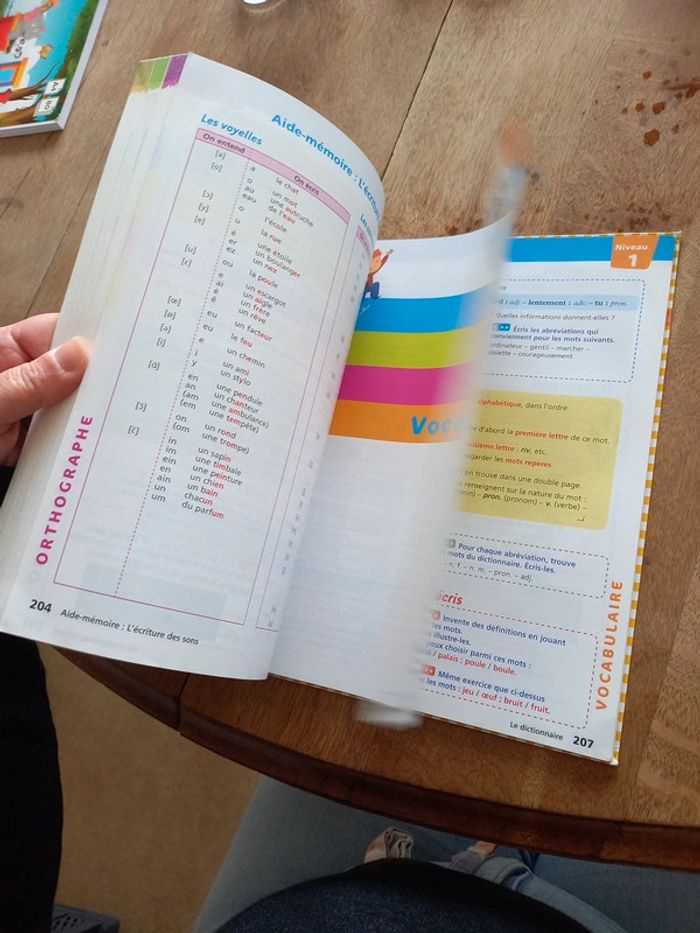 Aide-mémoire : L'écriture
Les voyelles
On entend
On écrit
[a] a le chat
[o] o un mot
au une autruche
eau de l'eau
[ɔ] o l'école
[y] u la rue
[e] é une étoile
er un boulanger
ez un nez
[u] ou la poule
[ɛ] e un escargot
ai un aigle
è un frère
ê un rêve
[œ] eu un facteur
[ø] eu le feu
[ə] e un chemin
[i] i un ami
y un stylo
[ɑ̃] en une pendule
an un chanteur
(am une ambulance)
(em une tempête)
[ɔ̃] on un rond
(om une trompe)
[ɛ̃] in un sapin
im une timbale
ein une peinture
en un chien
ain un bain
un chacun
um du parfum
ORTHOGRAPHE
204 Aide-mémoire : L'écriture des sons
Voc
Niveau
1
adj. – lentement : adv. – tu : pron.
Quelles informations donnent-elles ?
Écris les abréviations qui
conviennent pour les mots suivants.
ordinateur – gentil – marcher –
assiette – courageusement
alphabétique, dans l'ordre
d'abord la première lettre de ce mot.
lettre : riv, etc.
regarder les mots repères
on trouve dans une double page.
renseignent sur la nature du mot :
– pron. (pronom) – v. (verbe) –
Pour chaque abréviation, trouve
mots du dictionnaire. Écris-les.
n. f. – n. m. – pron. – adj.
écris
Invente des définitions en jouant
les mots.
illustre-les.
peux choisir parmi ces mots :
/ palais ; poule / boule.
Même exercice que ci-dessus
les mots : jeu / œuf ; bruit / fruit.
VOCABULAIRE
Le dictionnaire 207